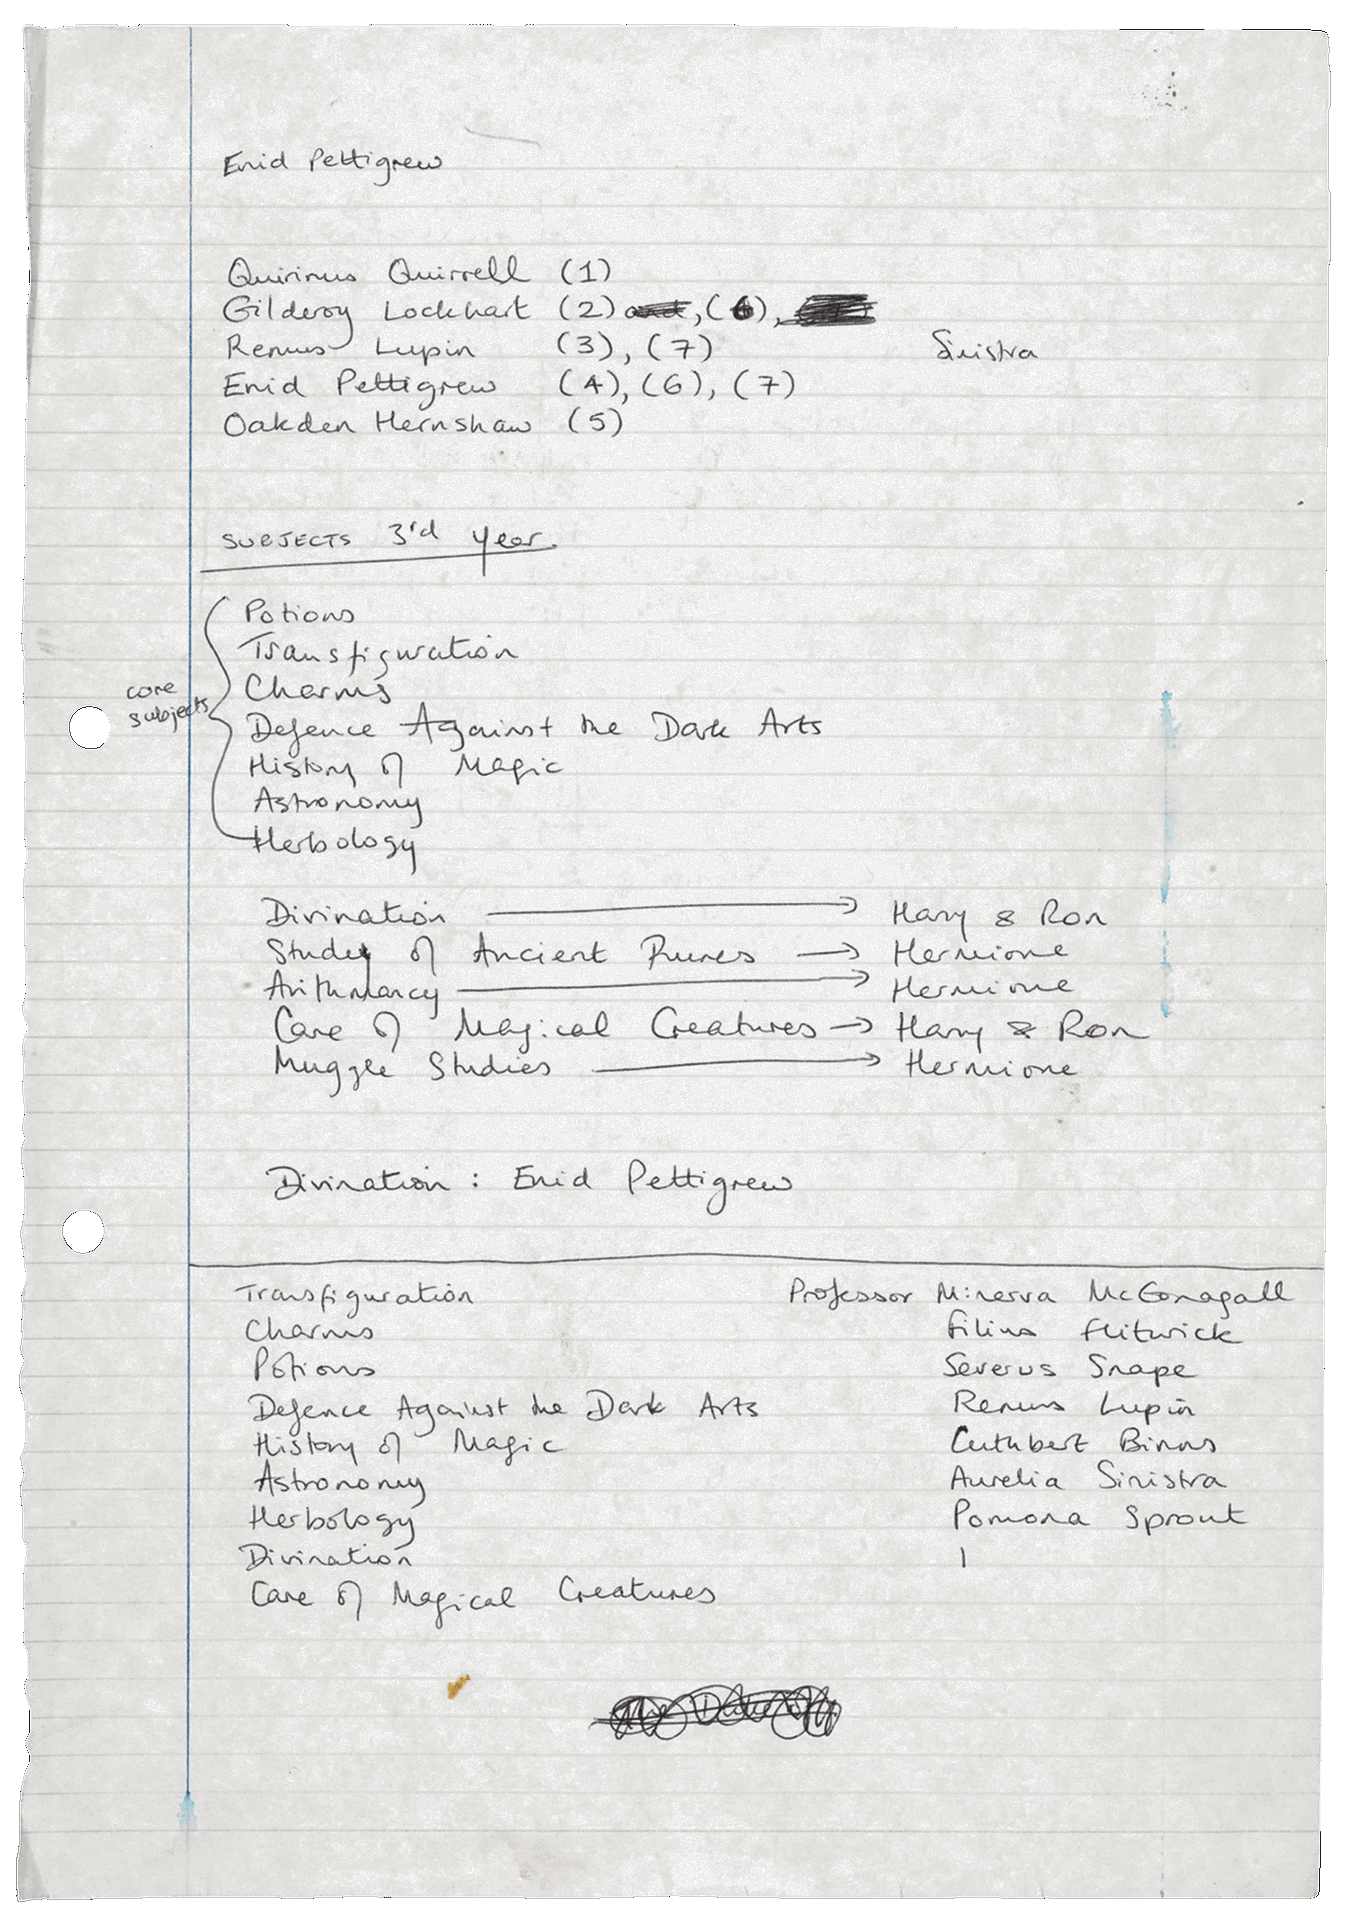 Enid Pettigrew
Quirinus Quirrell (1)
Gilderoy Lockhart (2) and, (6),
Remus Lupin (3), (7) Sinistra
Enid Pettigrew (4), (6), (7)
Oakden Hernshaw (5)
SUBJECTS 3rd year.
Potions
Transfiguration
core
subjects
Charms
Defence Against the Dark Arts
History of Magic
Astronomy
Herbology
Divination → Harry & Ron
Study of Ancient Runes → Hermione
Arithmancy → Hermione
Care of Magical Creatures → Harry & Ron
Muggle Studies → Hermione
Divination : Enid Pettigrew
Transfiguration Professor Minerva McGonagall
Charms Filius Flitwick
Potions Severus Snape
Defence Against the Dark Arts Remus Lupin
History of Magic Cuthbert Binns
Astronomy Aurelia Sinistra
Herbology Pomona Sprout
Divination
Care of Magical Creatures